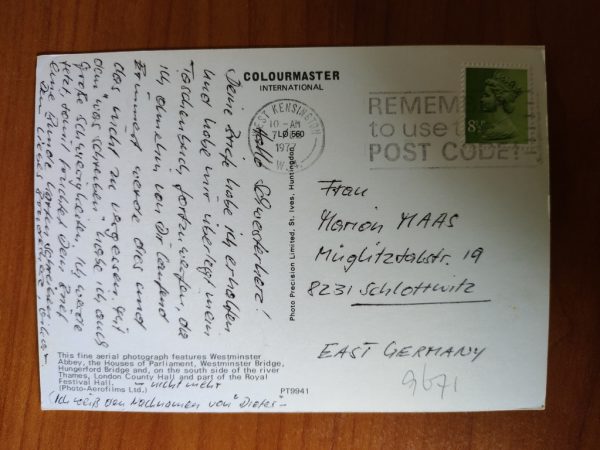 COLOURMASTER
INTERNATIONAL
Hallo Schwesterherz!
Deine Briefe habe ich erhalten
und habe mir überlegt mein
Taschenbuch fortzuwerfen, da
ich ohnehin von Dir laufend
Erinnert werde dies und
das nicht zu vergessen. Mit
dem "was schreiben" habe ich auch
große Schwierigkeiten, ich werde
jetzt, sofort
eine Stunde Karten schreiben
Photo Precision Limited, St. Ives, Huntingdon
WEST KENSINGTON
10 - AM
LØ 560
197
W.14
REMEMBER
to use the
POST CODE
8½P
Frau
Marion MAAS
Müglitztalstr. 19
8231 Schlottwitz
EAST GERMANY
9671
This fine aerial photograph features Westminster
Abbey, the Houses of Parliament, Westminster Bridge,
Hungerford Bridge and, on the south side of the river
Thames, London County Hall and part of the Royal
Festival Hall.
(Photo-Aerofilms Ltd.)
PT9941
– nicht mehr
(Ich weiß den Nachnamen von "Dieter" –